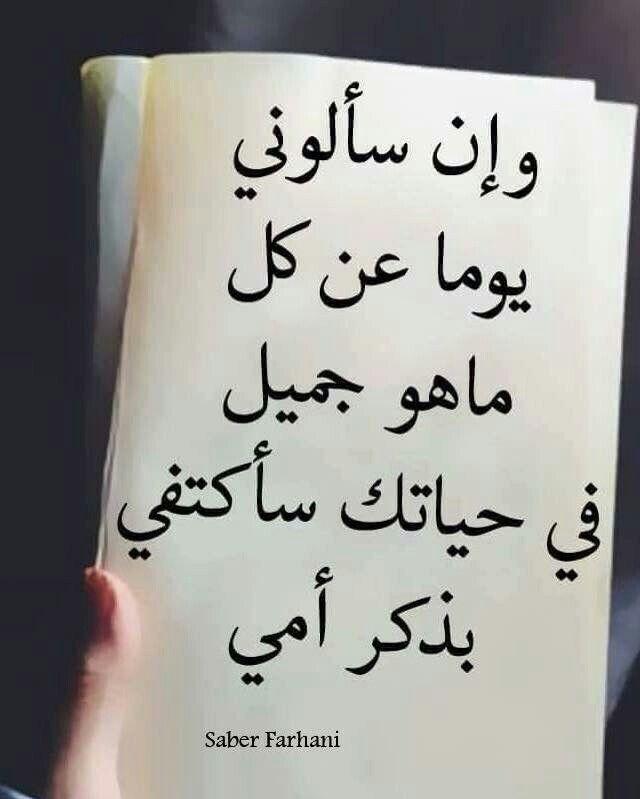 وإن سألوني
يوما عن كل
ماهو جميل
في حياتك سأكتفي
بذكر أمي
Saber Farhani